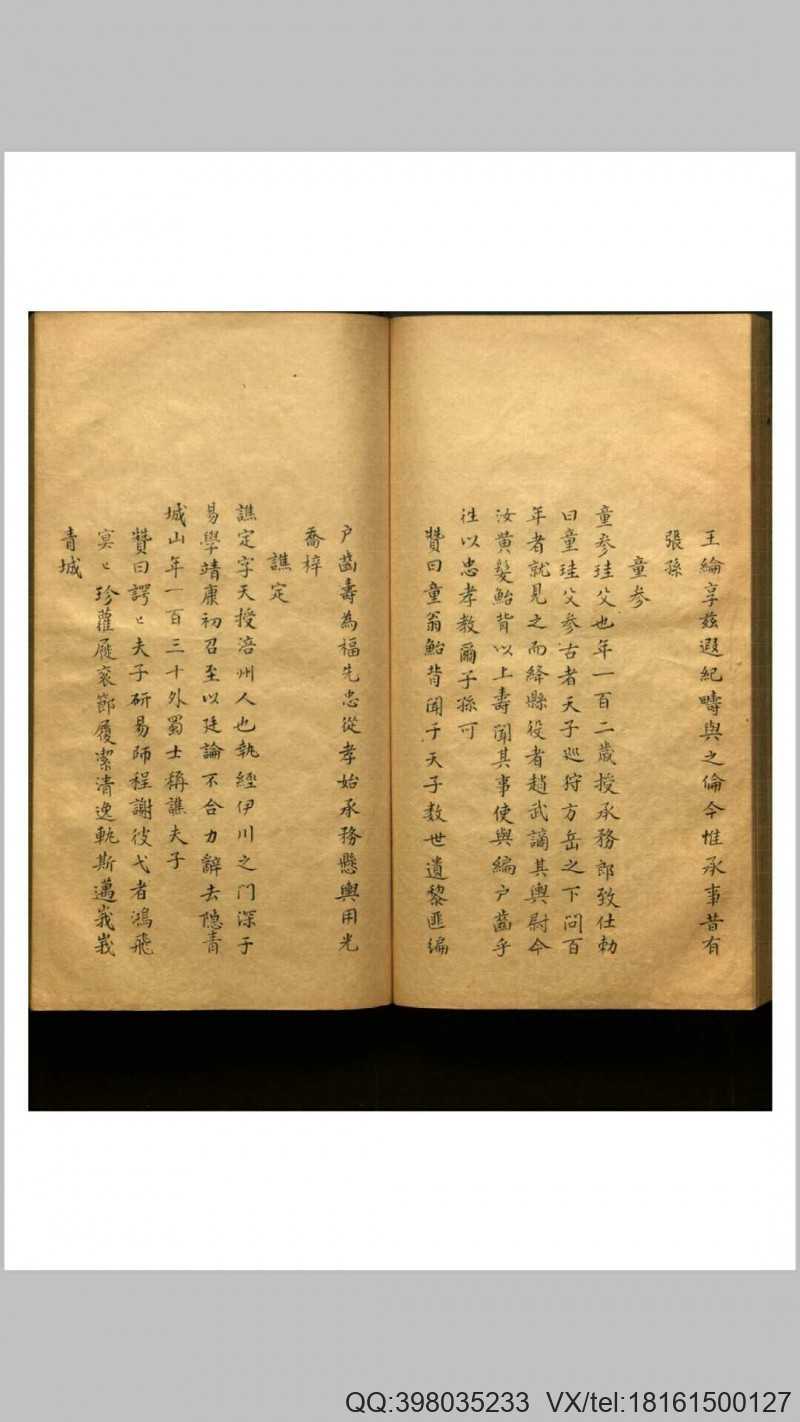 王綸享兹遐紀疇與之倫今惟承事昔有
張孫
童參
童參珪父也年一百二歲授承務郎致仕勅
曰童珪父參古者天子巡狩方岳之下問百
年者就見之而絳縣役者趙武謫其輿尉今
汝黄髮鮐背以上壽聞其事使與編户齒乎
徃以忠孝教爾子孫可
贊曰童翁鮐背聞于天子数世遺黎匪編
户齒壽為福先忠從孝始承務懸輿用光
喬梓
譙定
譙定字天授涪州人也執經伊川之门深于
易學靖康初召至以廷論不合力辭去隐青
城山年一百三十外蜀士稱譙夫子
贊曰諤〻夫子研易師程謝彼弋者鴻飛
㝠〻珍蘿屣衮節履潔清逸軌斯邁峩峩
青城
QQ:398035233 VX/tel:18161500127